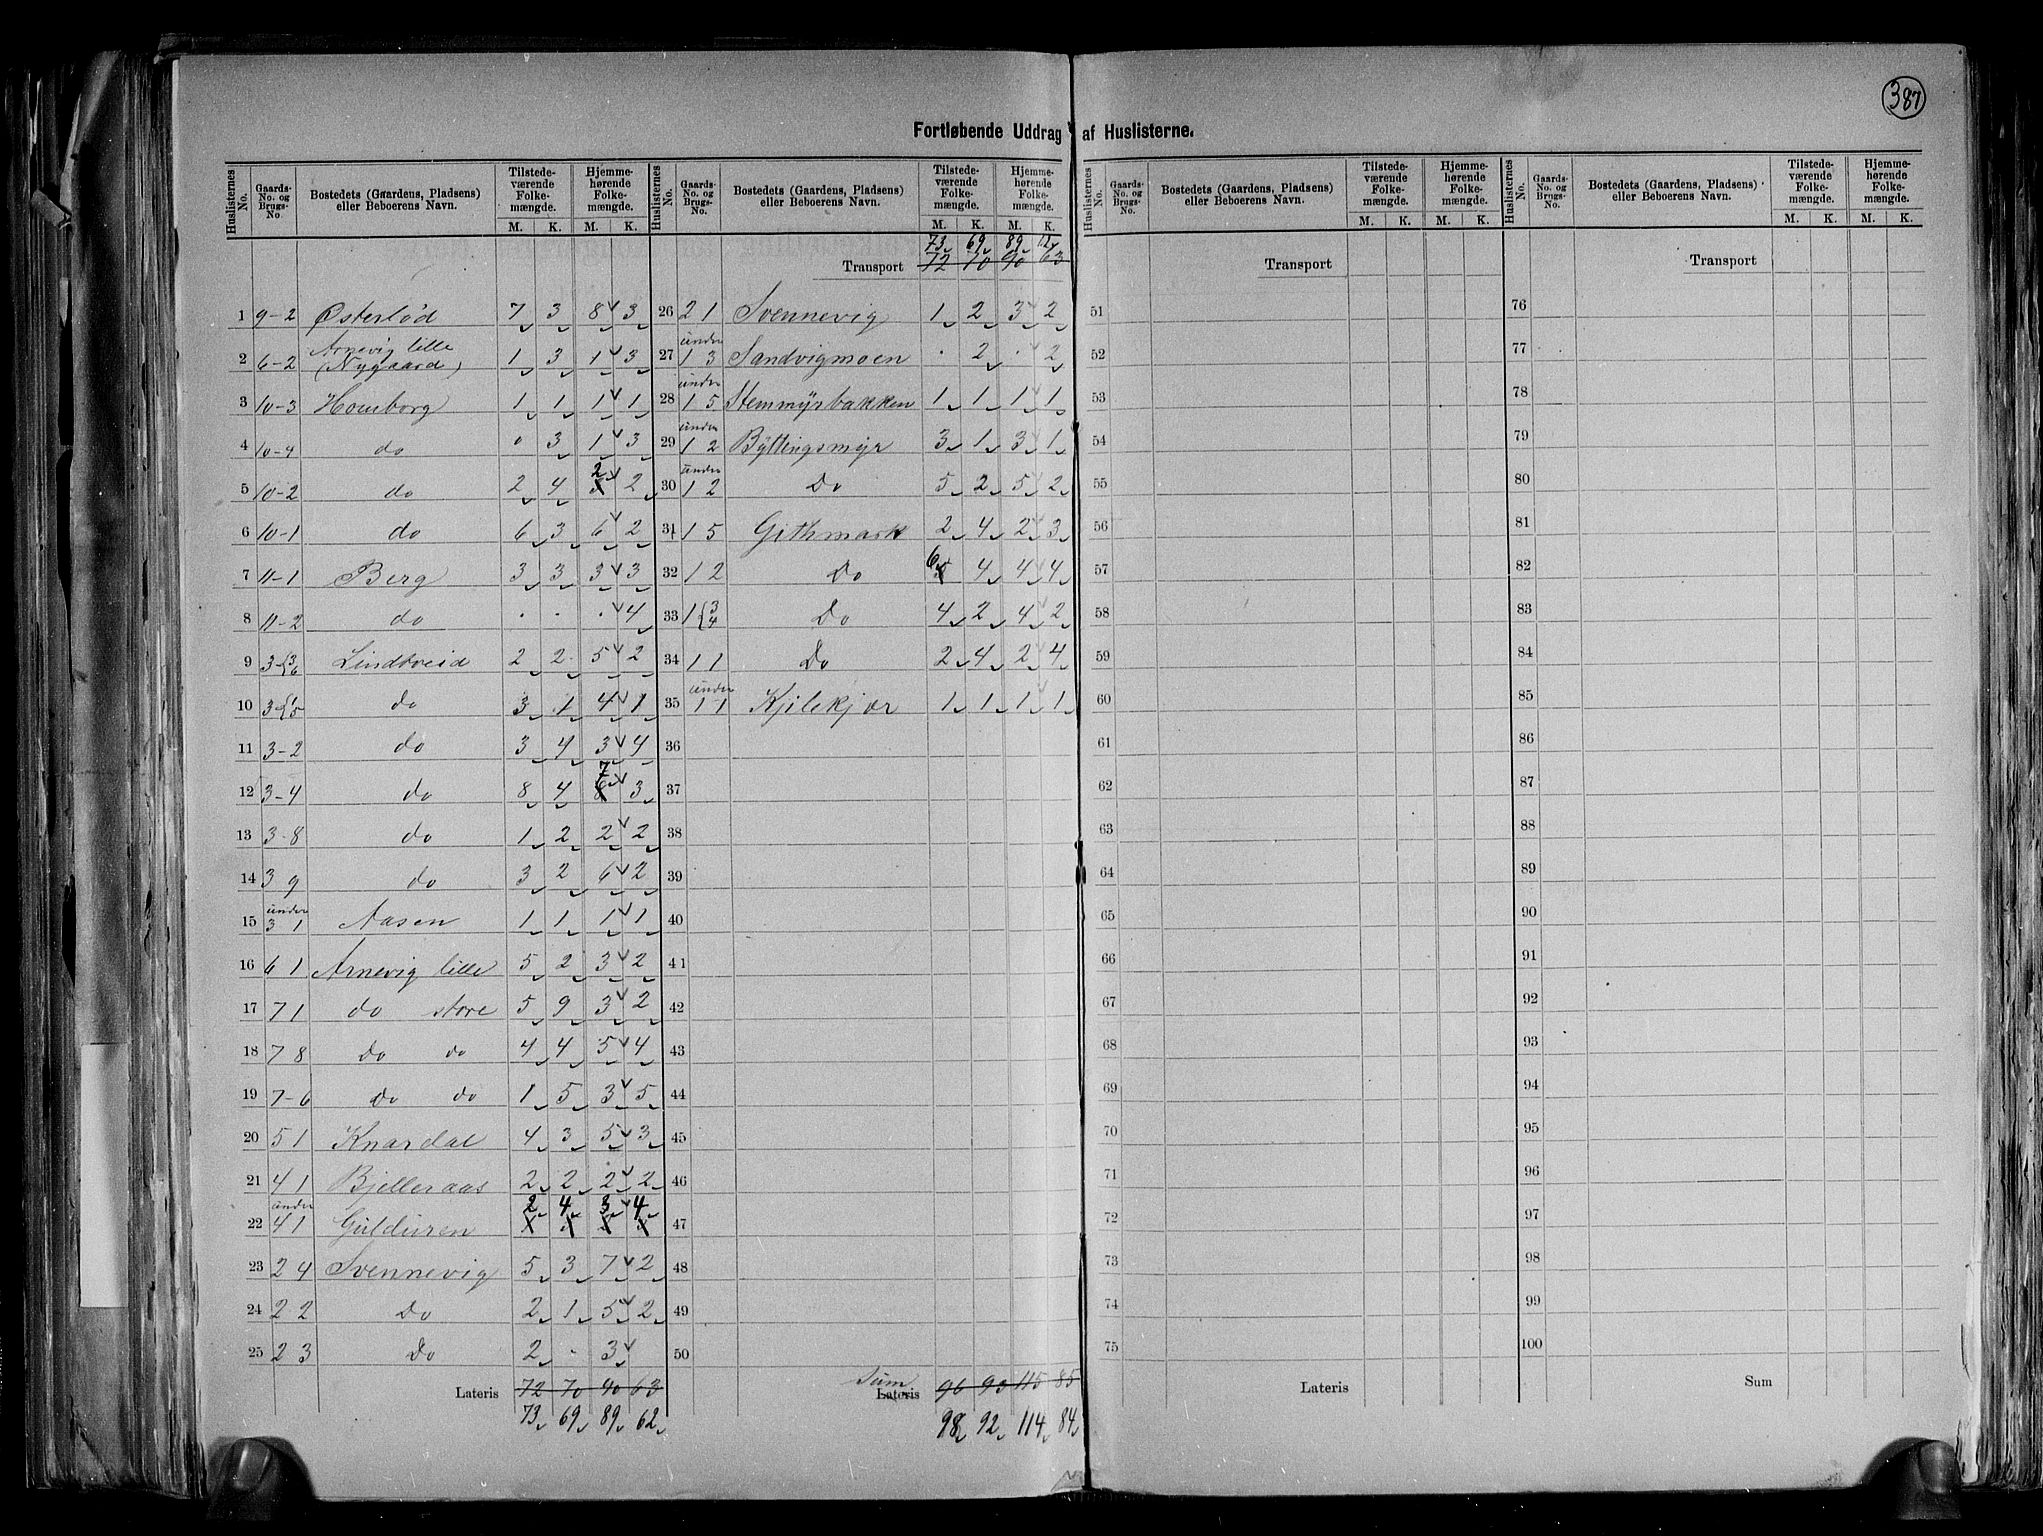 387
Fortløbende Uddrag af Huslisterne.
Huslisternes No. | Gaards-No. og Brugs-No. | Bostedets (Gaardens, Pladsens) eller Beboerens Navn. | Tilstedeværende Folkemængde. M. K. | Hjemmehørende Folkemængde. M. K.
1 9-2 Østerlød 7 3 8 3
2 6-2 Arnevig lille (Nygaard) 1 3 1 3
3 10-3 Homborg 1 1 1 1
4 10-4 do 0 3 1 3
5 10-2 do 2 4 2 2
6 10-1 do 6 3 6 2
7 11-1 Berg 3 3 3 3
8 11-2 do . . . 4
9 3-{3/6 Lindtveid 2 2 5 2
10 3-{1/5 do 3 1 4 1
11 3-2 do 3 4 3 4
12 3-4 do 8 4 7 3
13 3-8 do 1 2 2 2
14 3 9 do 3 2 6 2
15 under 3 1 Aasen 1 1 1 1
16 6 1 Arnevig lille 5 2 3 2
17 7 1 do store 5 9 3 2
18 7 8 do do 4 4 5 4
19 7-6 do do 1 5 3 5
20 5 1 Knardal 4 3 5 3
21 4 1 Bjelleraas 2 2 2 2
22 under 4 1 Gulduren 2 4 3 4
23 2 4 Svennevig 5 3 7 2
24 2 2 Do 2 1 5 2
25 2 3 Do 2 - 3
Lateris 72 70 90 63
73 69 89 62
Huslisternes No. | Gaards-No. og Brugs-No. | Bostedets (Gaardens, Pladsens) eller Beboerens Navn. | Tilstedeværende Folkemængde. M. K. | Hjemmehørende Folkemængde. M. K.
73 69 89 62
Transport 72 70 90 63
26 2 1 Svennevig 1 2 3 2
27 under 1 3 Sandvigmoen . 2 . 2
28 under 1 5 Stemmyrbakken 1 1 1 1
29 under 1 2 Byttingsmyr 3 1 3 1
30 under 1 2 Do 5 2 5 2
31 1 5 Githmark 2 4 2 3
32 1 2 Do 6 4 4 4
33 1{3/4 Do 4 2 4 2
34 1 1 Do 2 4 2 4
35 under 1 1 Kjilekjær 1 1 1 1
36
37
38
39
40
41
42
43
44
45
46
47
48
49
50
Sum
Lateris 96 93 115 85
98 92 114 84
Huslisternes No. | Gaards-No. og Brugs-No. | Bostedets (Gaardens, Pladsens) eller Beboerens Navn. | Tilstedeværende Folkemængde. M. K. | Hjemmehørende Folkemængde. M. K.
Transport
51
52
53
54
55
56
57
58
59
60
61
62
63
64
65
66
67
68
69
70
71
72
73
74
75
Lateris
Huslisternes No. | Gaards-No. og Brugs-No. | Bostedets (Gaardens, Pladsens) eller Beboerens Navn. | Tilstedeværende Folkemængde. M. K. | Hjemmehørende Folkemængde. M. K.
Transport
76
77
78
79
80
81
82
83
84
85
86
87
88
89
90
91
92
93
94
95
96
97
98
99
100
Sum